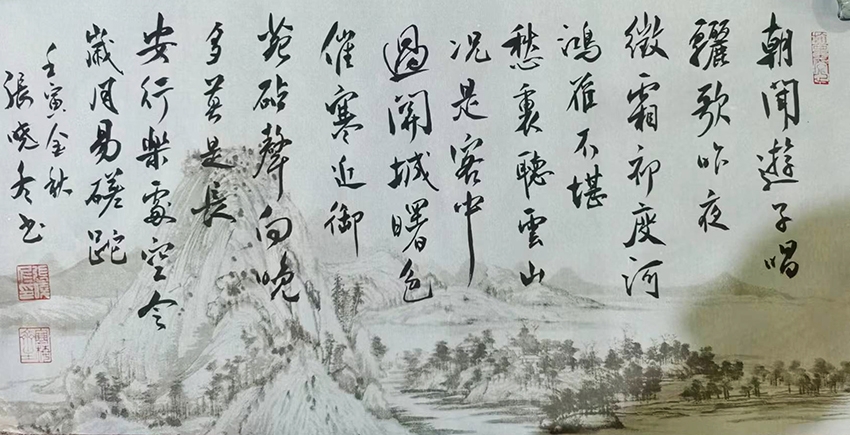 朝聞遊子唱
驪歌昨夜
微霜初度河
鴻雁不堪
愁裏聽雲山
況是客中
過關城曙色
催寒近御
苑砧聲向晚
多莫是長
安行樂處空令
歲月易磋跎
壬寅金秋
張曉冬书